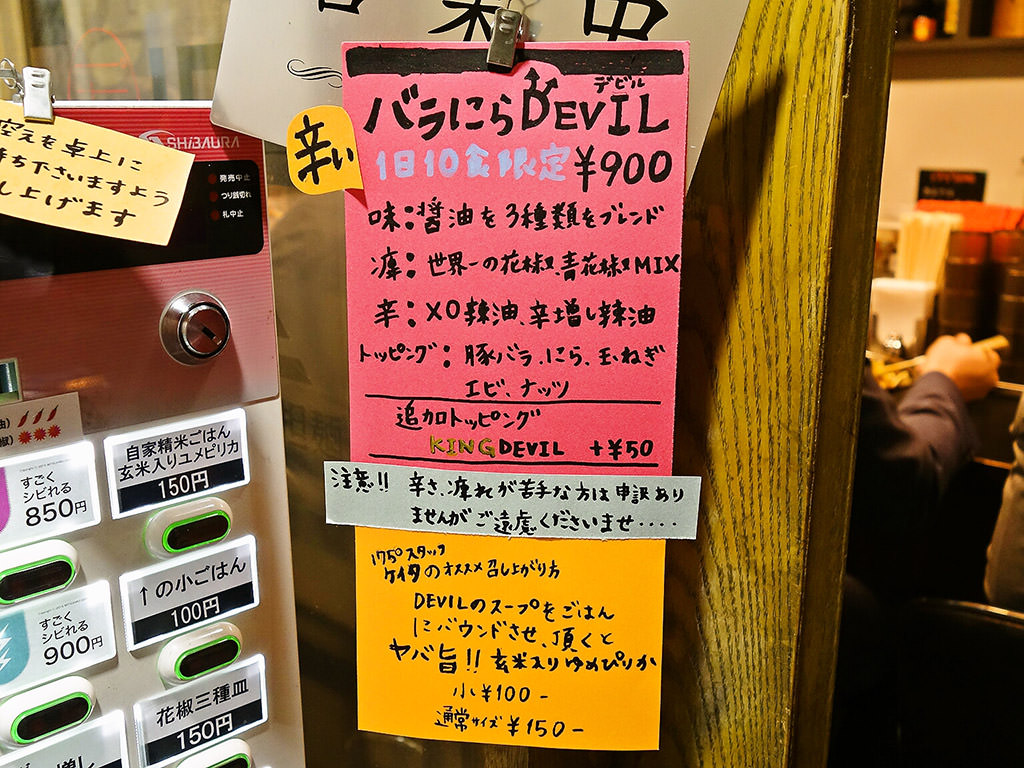 デビル
バラにらDEVIL
辛い
1日10食限定 ¥900
味:醤油を3種類をブレンド
痺:世界一の花椒、青花椒MIX
辛:XO辣油、辛増し辣油
トッピング:豚バラ、にら、玉ねぎ
エビ、ナッツ
追加トッピング
KINGDEVIL +¥50
注意!! 辛さ、痺れが苦手な方は申訳あり
ませんがご遠慮くださいませ....
175°スタッフ
ケイタのオススメ召し上がり方
DEVILのスープをごはん
にバウンドさせ、頂くと
ヤバ旨!! 玄米入りゆめぴりか
小¥100-
通常サイズ¥150-
控えを卓上に
ち下さいますよう
し上げます
SHIBAURA
発売中止
つり銭切れ
札中止
自家精米ごはん
玄米入りユメピリカ
150円
すごく
シビれる
850円
↑の小ごはん
100円
すごく
シビれる
900円
花椒三種皿
150円